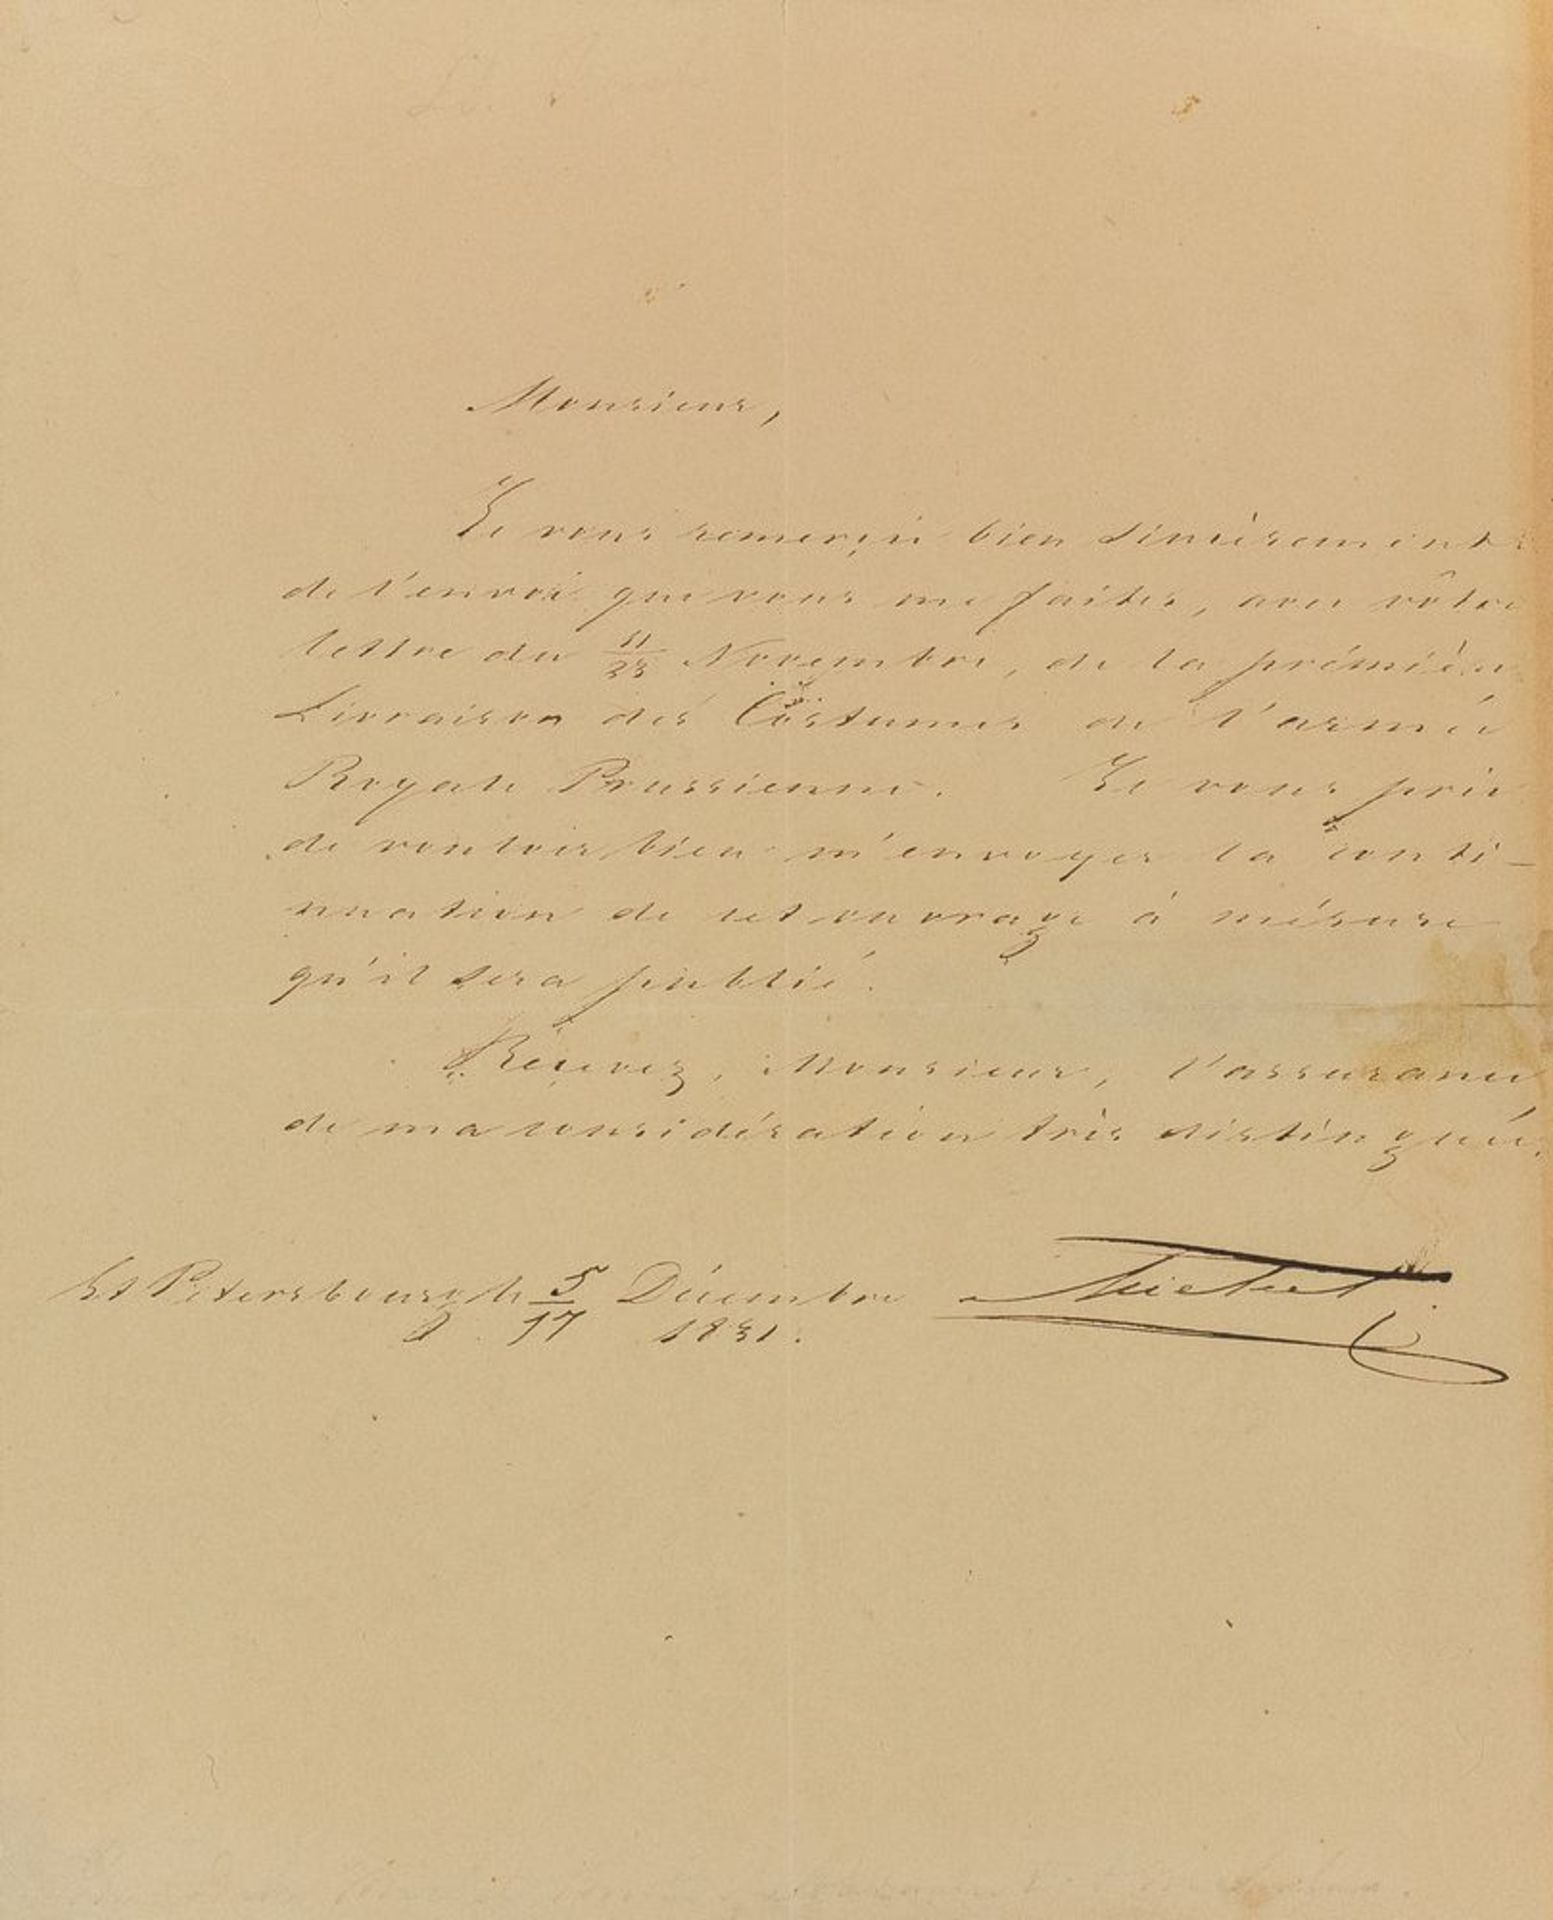 Monsieur,
Je vous remerçie bien sincèrement
de l'envoi que vous me faites, avec vôtre
lettre du 11/23 Novembre, de la prémière
Livraison des Costumes de l'armée
Royale Prussienne. Je vous prie
de vouloir bien m'envoyer la conti-
nuation de cet ouvrage à mésure
qu'il sera publié.
Réçevez, Monsieur, l'assurance
de ma considération très distinguée.
St Petersbourgh 5/17 Décembre
1831.
Michel